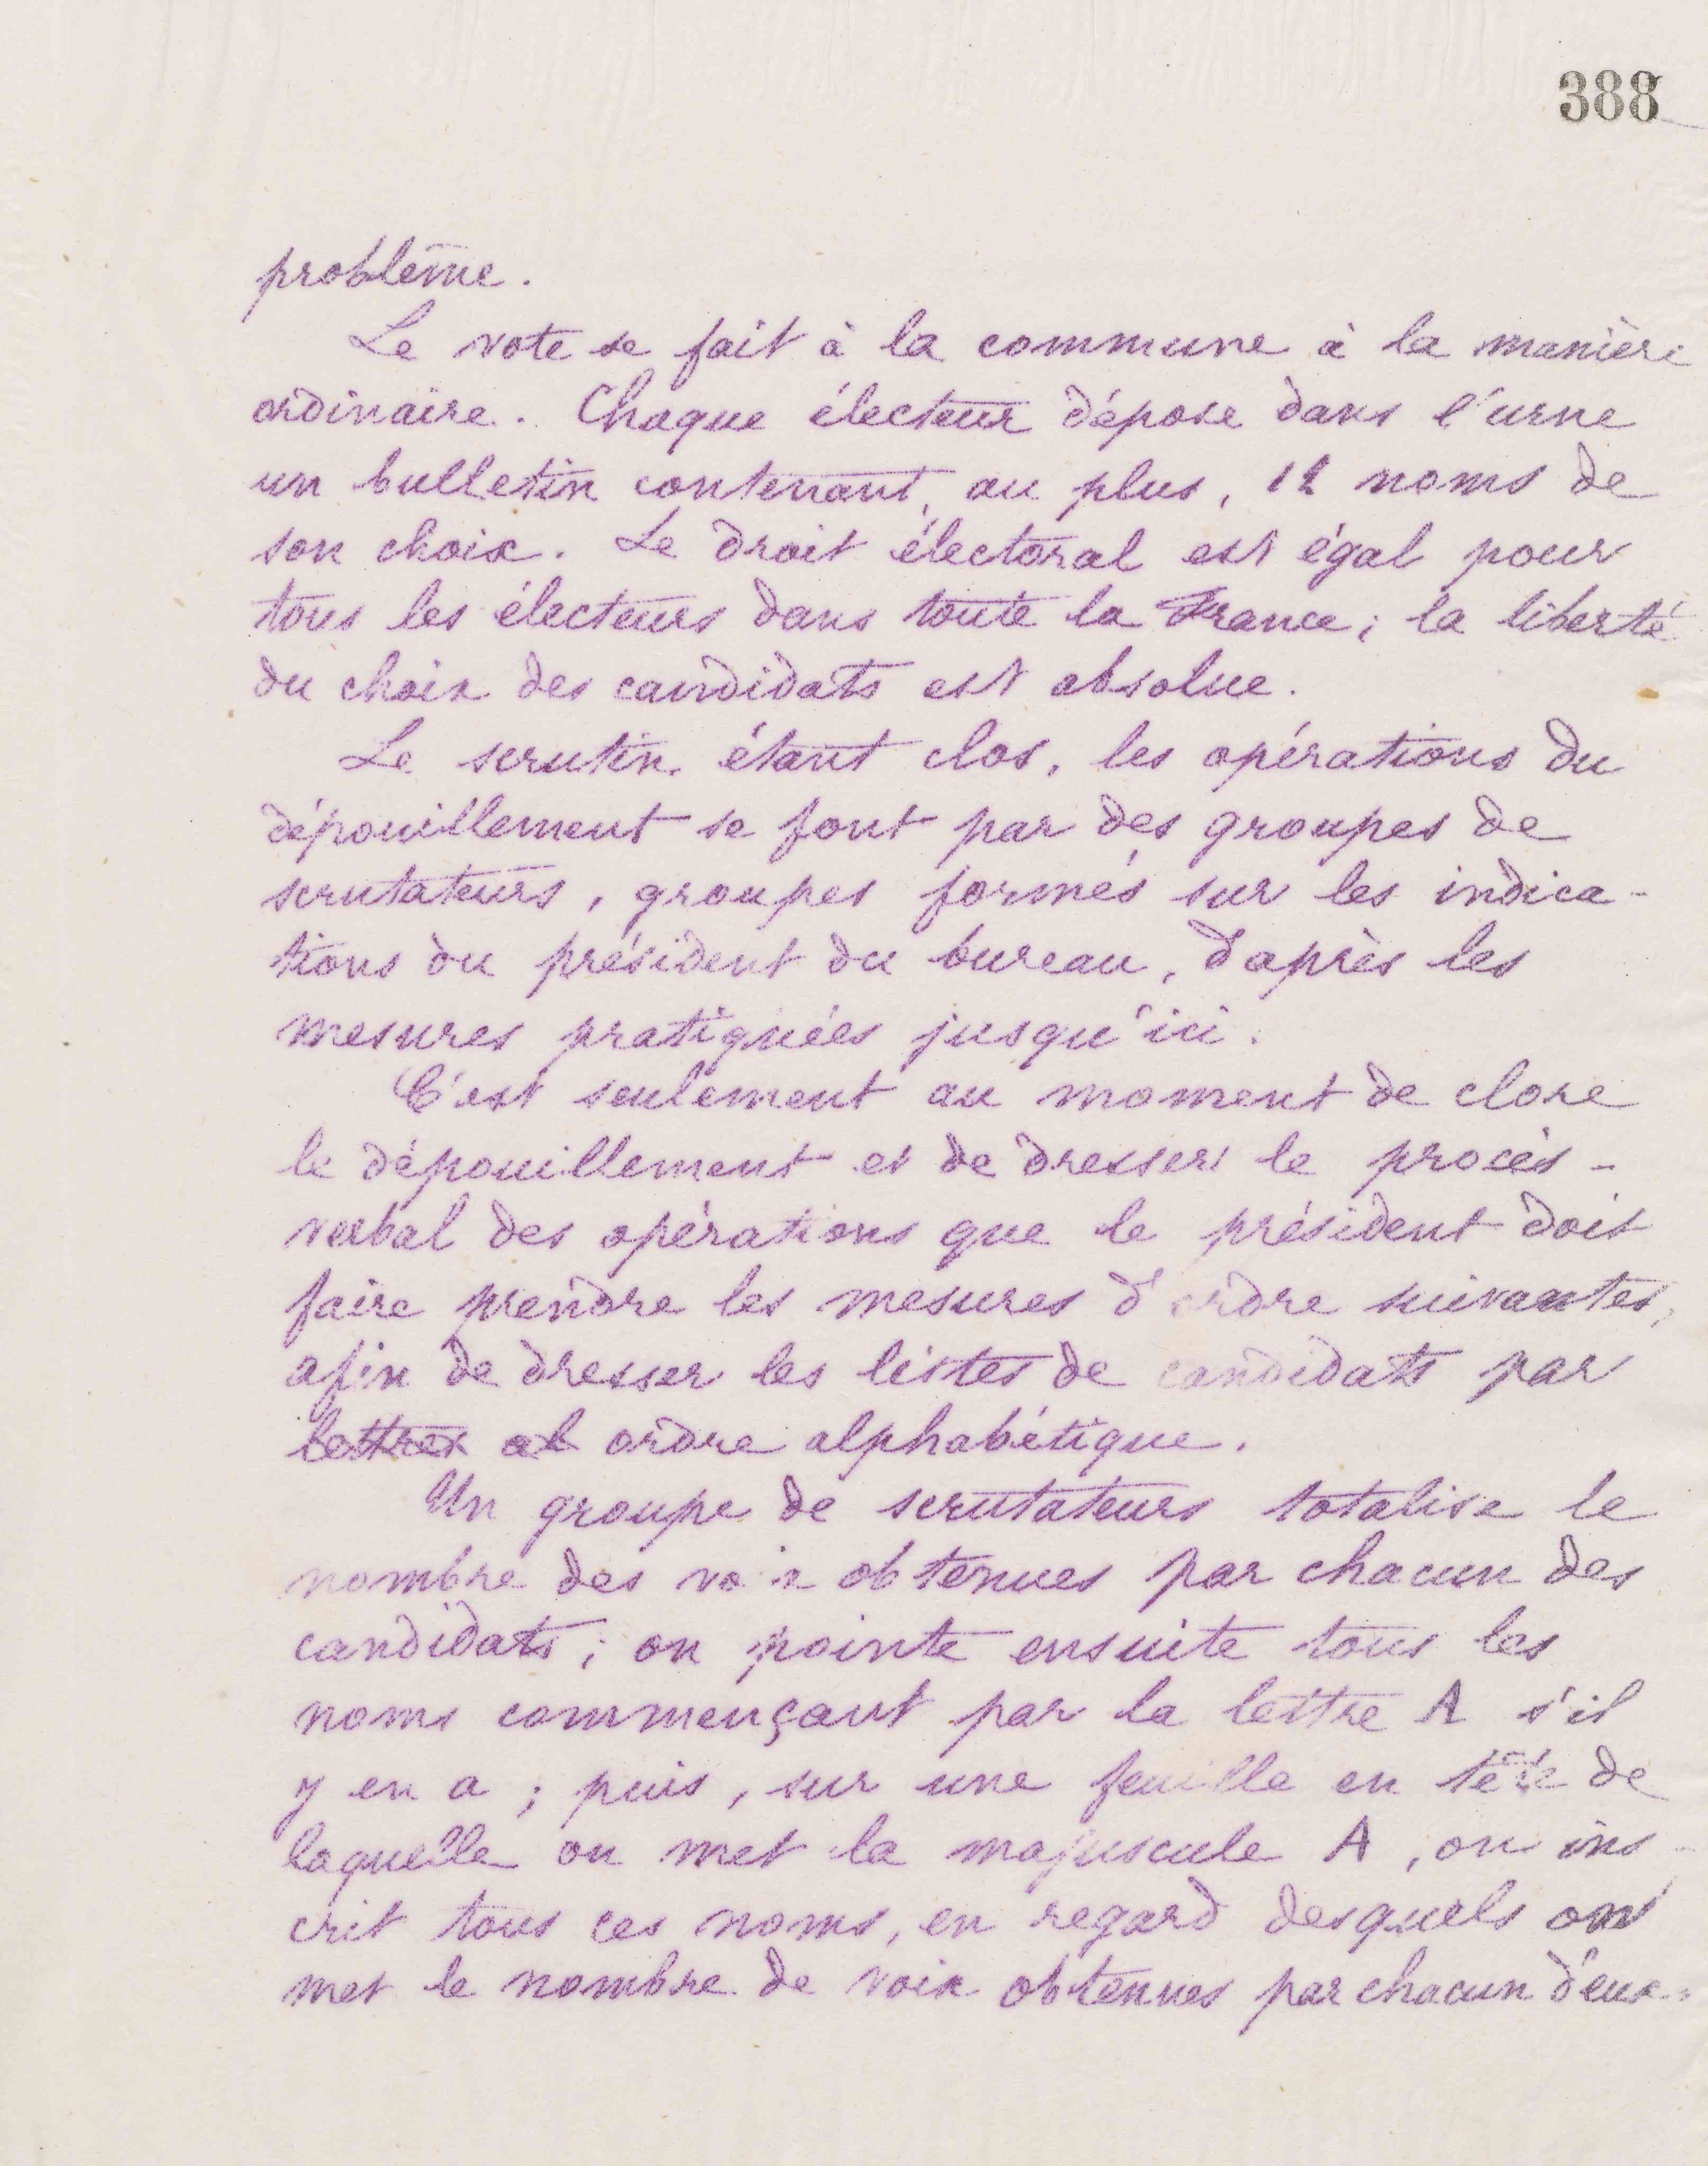 388
problème.
Le vote se fait à la commune à la manière
ordinaire. Chaque électeur dépose dans l'urne
un bulletin contenant, au plus, 12 noms de
son choix. Le droit électoral est égal pour
tous les électeurs dans toute la France ; la liberté
du choix des candidats est absolue.
Le scrutin étant clos, les opérations du
dépouillement se font par des groupes de
scrutateurs, groupes formés sur les indica-
tions du président du bureau, d'après les
mesures pratiquées jusqu'ici.
C'est seulement au moment de clore
le dépouillement et de dresser le procès-
verbal des opérations que le président doit
faire prendre les mesures d'ordre suivantes,
afin de dresser les listes de candidats par
lettres al ordre alphabétique.
Un groupe de scrutateurs totalise le
nombre des voix obtenues par chacun des
candidats ; on pointe ensuite tous les
noms commençant par la lettre A s'il
y en a ; puis, sur une feuille en tête de
laquelle on met la majuscule A, on ins-
crit tous ces noms, en regard desquels on
met le nombre de voix obtenues par chacun d'eux.